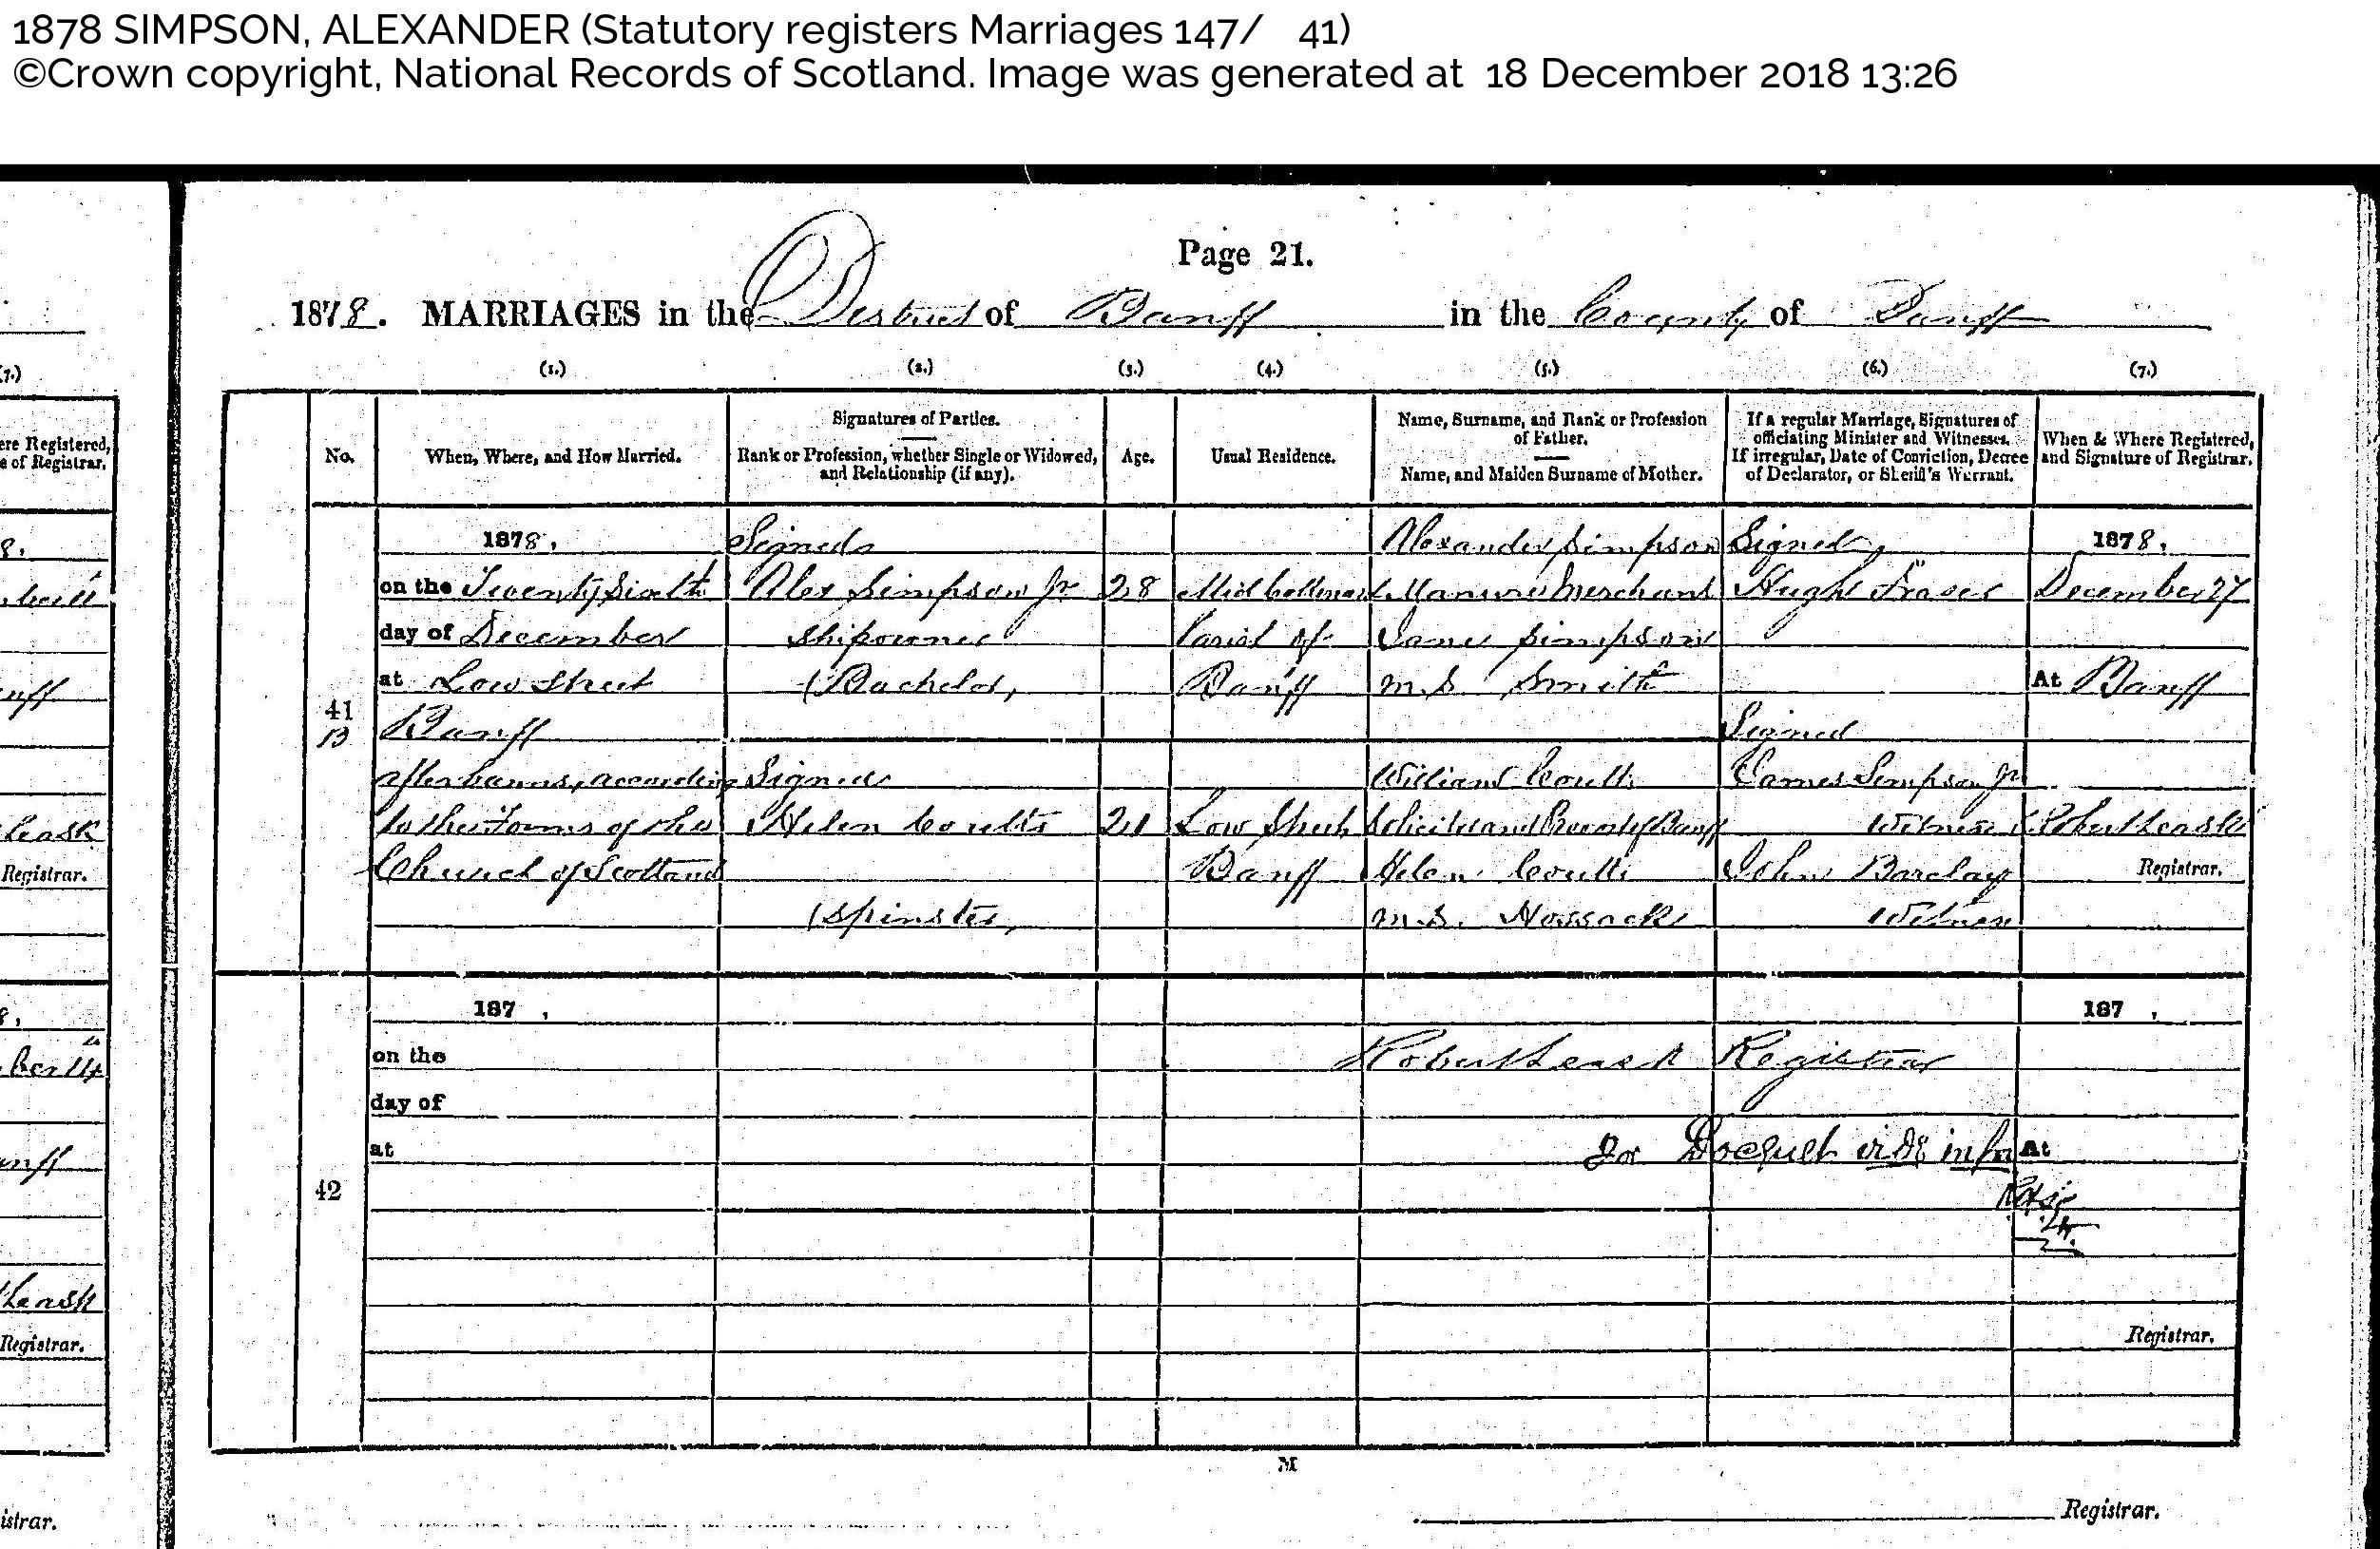 1878 SIMPSON, ALEXANDER (Statutory registers Marriages 147/ 41)
©Crown copyright, National Records of Scotland. Image was generated at 18 December 2018 13:26
Page 21.
1878. MARRIAGES in the District of Banff in the County of Banff
(7.)
(1.) (2.) (3.) (4.) (5.) (6.) (7.)
ere Registered,
e of Registrar.
No.
When, Where, and How Married.
Signatures of Parties.
Rank or Profession, whether Single or Widowed,
and Relationship (if any).
Age.
Usual Residence.
Name, Surname, and Rank or Profession
of Father.
Name, and Maiden Surname of Mother.
If a regular Marriage, Signatures of
officiating Minister and Witnesses.
If irregular, Date of Conviction, Decree
of Declarator, or Sheriff's Warrant.
When & Where Registered,
and Signature of Registrar.
41
B
1878,
on the Twenty Sixth
day of December
at Low Street
Banff
after banns, according
to the Forms of the
Church of Scotland
Signed
Alex Simpson Jr
Shipowner
(Bachelor)
Signed
Helen Coutts
(Spinster)
28
21
Parish of
Banff
Low Street
Banff
Alexander Simpson
Manure Merchant
Jane Simpson
m.s Smith
William Coutts
Solicitor and Provost of Banff
Helen Coutts
m.s. Hossack
Signed
Hugh Fraser
Signed
James Simpson Jr
Witness
John Barclay
Witness
1878,
December 27
At Banff
Robert Leask
Registrar.
42
187 ,
on the
day of
at
Robert Leask Registrar
For Docquet vide infra
187 ,
At
Registrar.
M
Registrar.
8,
anff
Leask
Registrar.
8,
ber 14
anff
Leask
Registrar.
istrar.